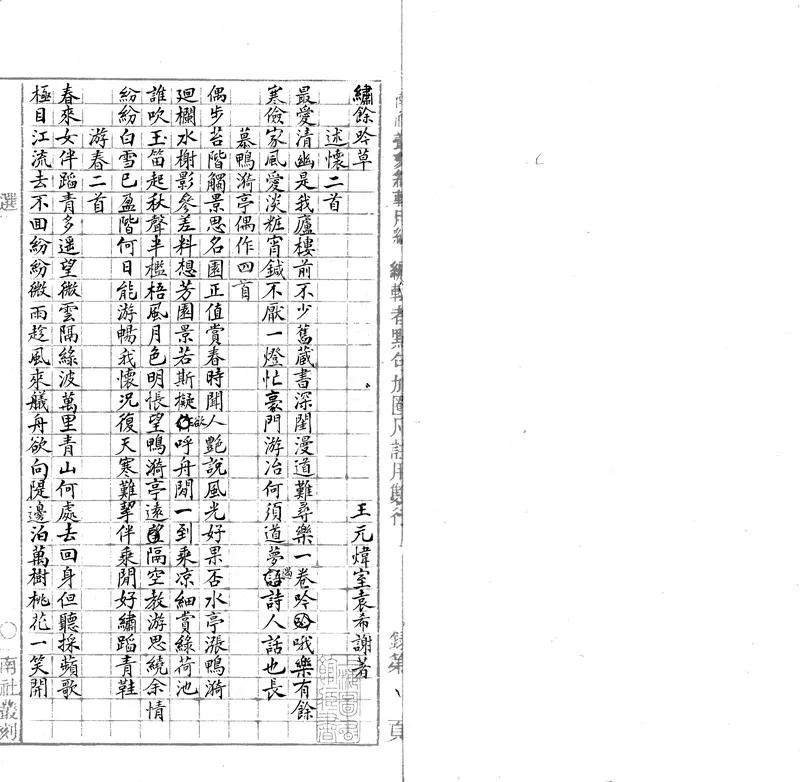 繡餘吟草
王元煒室袁希謝著
述懷二首
最愛清幽是我廬樓前不少舊藏書深閨漫道難尋樂一卷吟哦樂有餘
寒儉家風愛淡粧宵鍼不厭一燈忙豪門游冶何須道夢遇詩人話也長
慕鴨漪亭偶作四首
偶步苔階觸景思名園正值賞春時聞人艷說風光好果否水亭漲鴨漪
迴欄水榭影參差料想芳園景若斯擬欲呼舟閒一到乘凉細賞綠荷池
誰吹玉笛起秋聲半檻梧風月色明悵望鴨漪亭遠隔空教游思繞余情
紛紛白雪已盈階何日能游暢我懷況復天寒難挈伴乘閒好繡蹈青鞋
游春二首
春來女伴蹈青多遥望微雲隔綠波萬里青山何處去回身但聽採蘋歌
極目江流去不回紛紛微雨趁風來艤舟欲向隄邊泊萬樹桃花一笑開
選
南社叢刻
編輯者點句加圈凡註用數行
頁